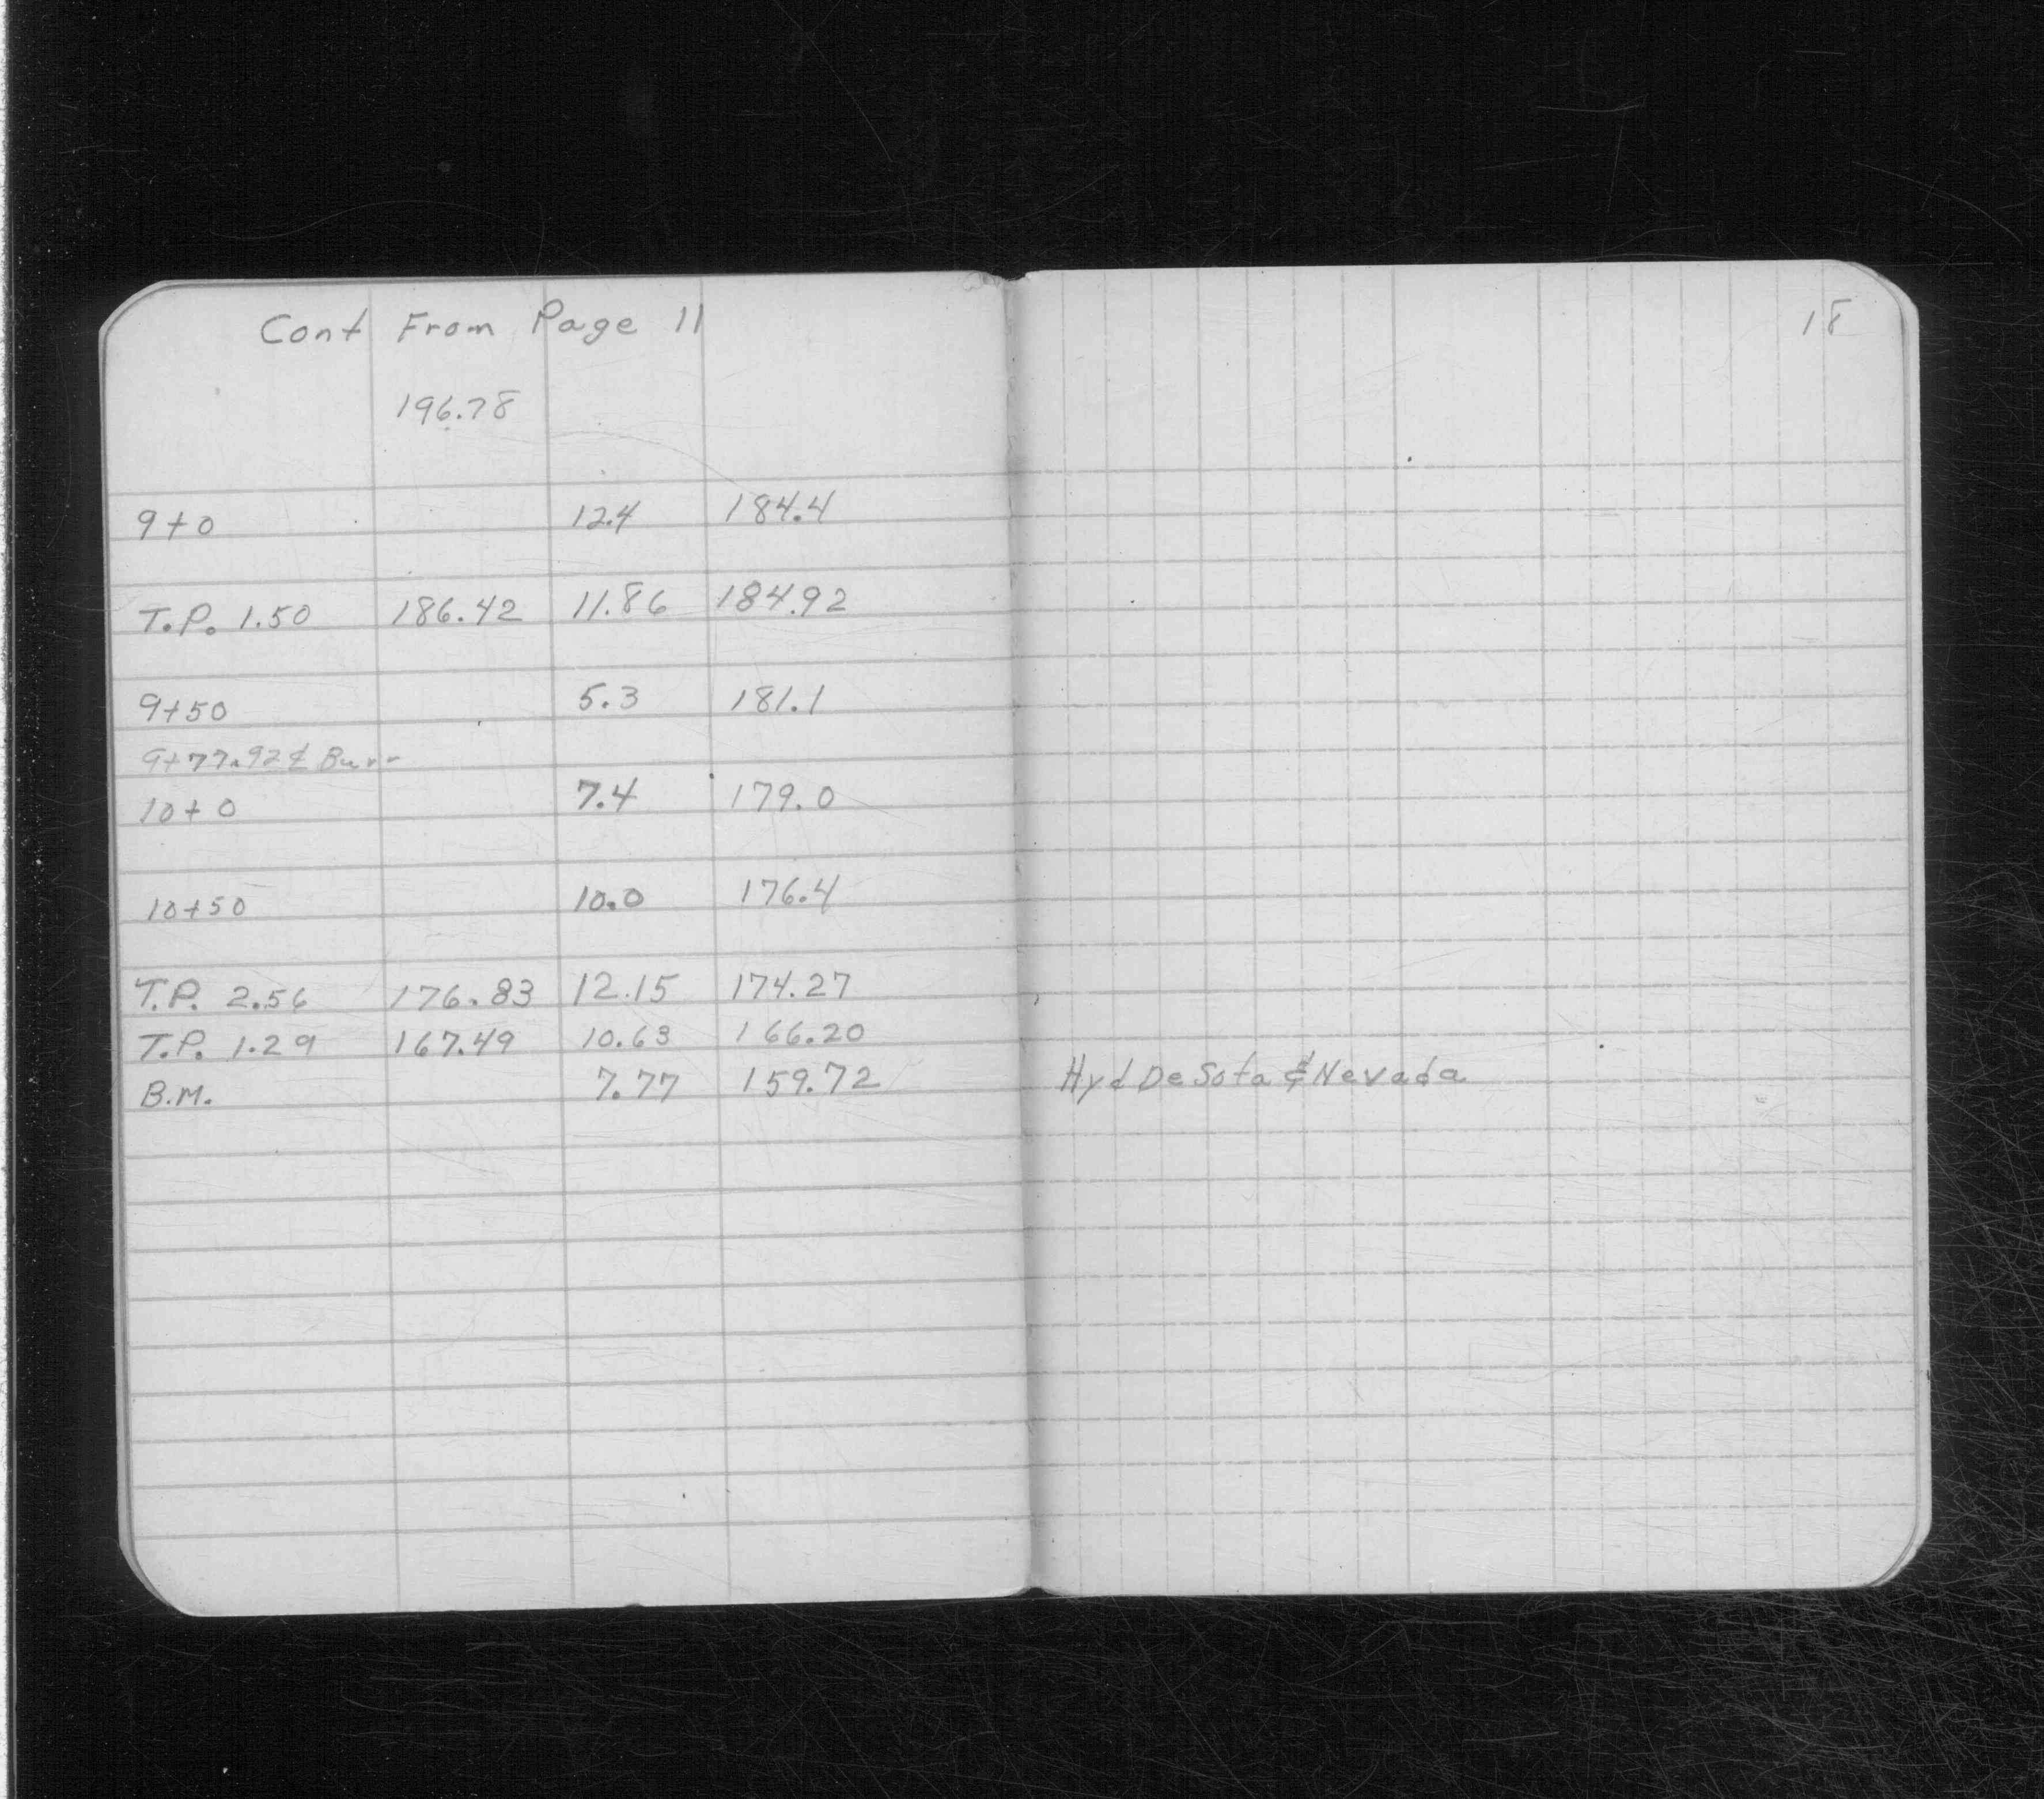 Cont From Page 11
18
196.78
9+0 12.4 184.4
T.P. 1.50 186.42 11.86 184.92
9+50 5.3 181.1
9+77.92 ¢ Burr
10+0 7.4 179.0
10+50 10.0 176.4
T.P. 2.56 176.83 12.15 174.27
T.P. 1.29 167.49 10.63 166.20
B.M. 7.77 159.72 Hyd De Sota & Nevada